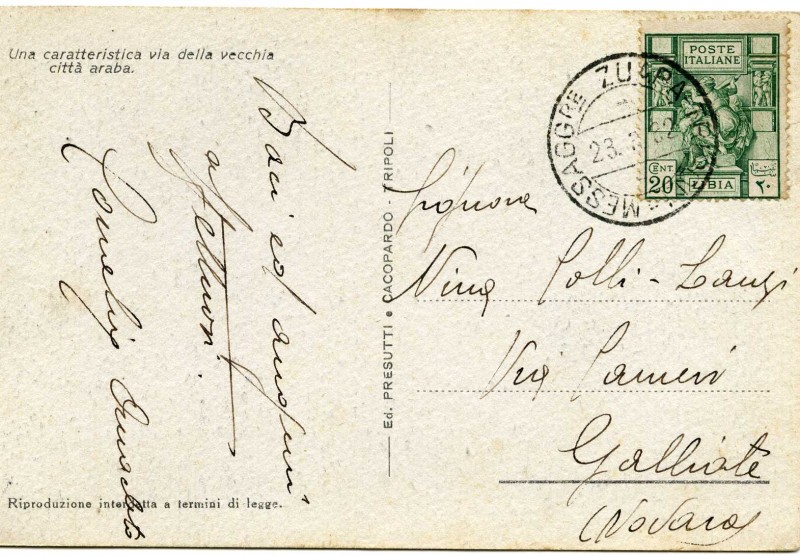 Una caratteristica via della vecchia
città araba.
Baci ed auguri
affettuosi.
Riproduzione interdetta a termini di legge.
Ed. PRESUTTI e CACOPARDO - TRIPOLI
POSTE
ITALIANE
CENT
20
LIBIA
٢٠
ZUARA
MESSAGGRE
23.
Signora
Nina Colli-Langi
Via Cameri
Galliate
(Novara)